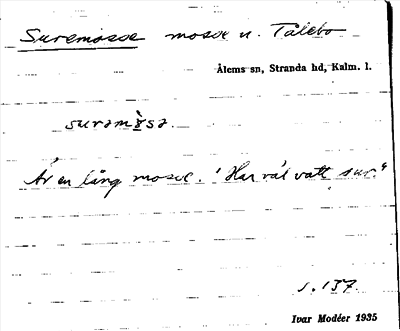 Suremosse mosse n. Tålebo
Ålems sn, Stranda hd, Kalm. l.
surəmòsə.
Är en lång mosse. "Har väl vatt sur."
s. 137.
Ivar Modéer 1935